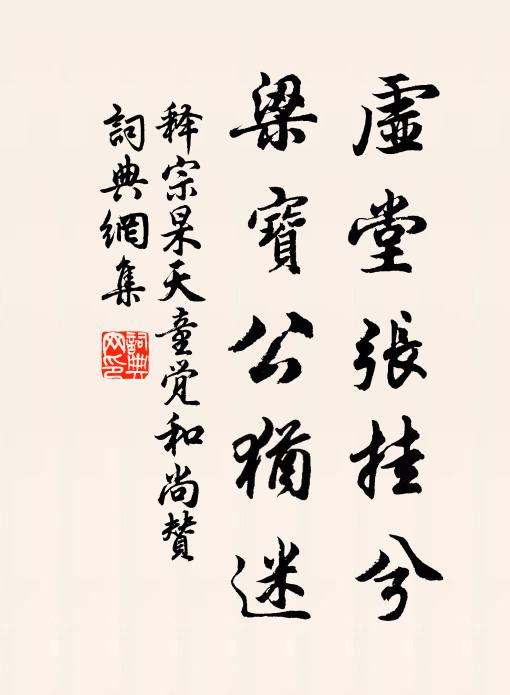 虛堂張挂兮
梁寶公猶迷
释宗杲天童觉和尚贊
詞典網集
詞典网印